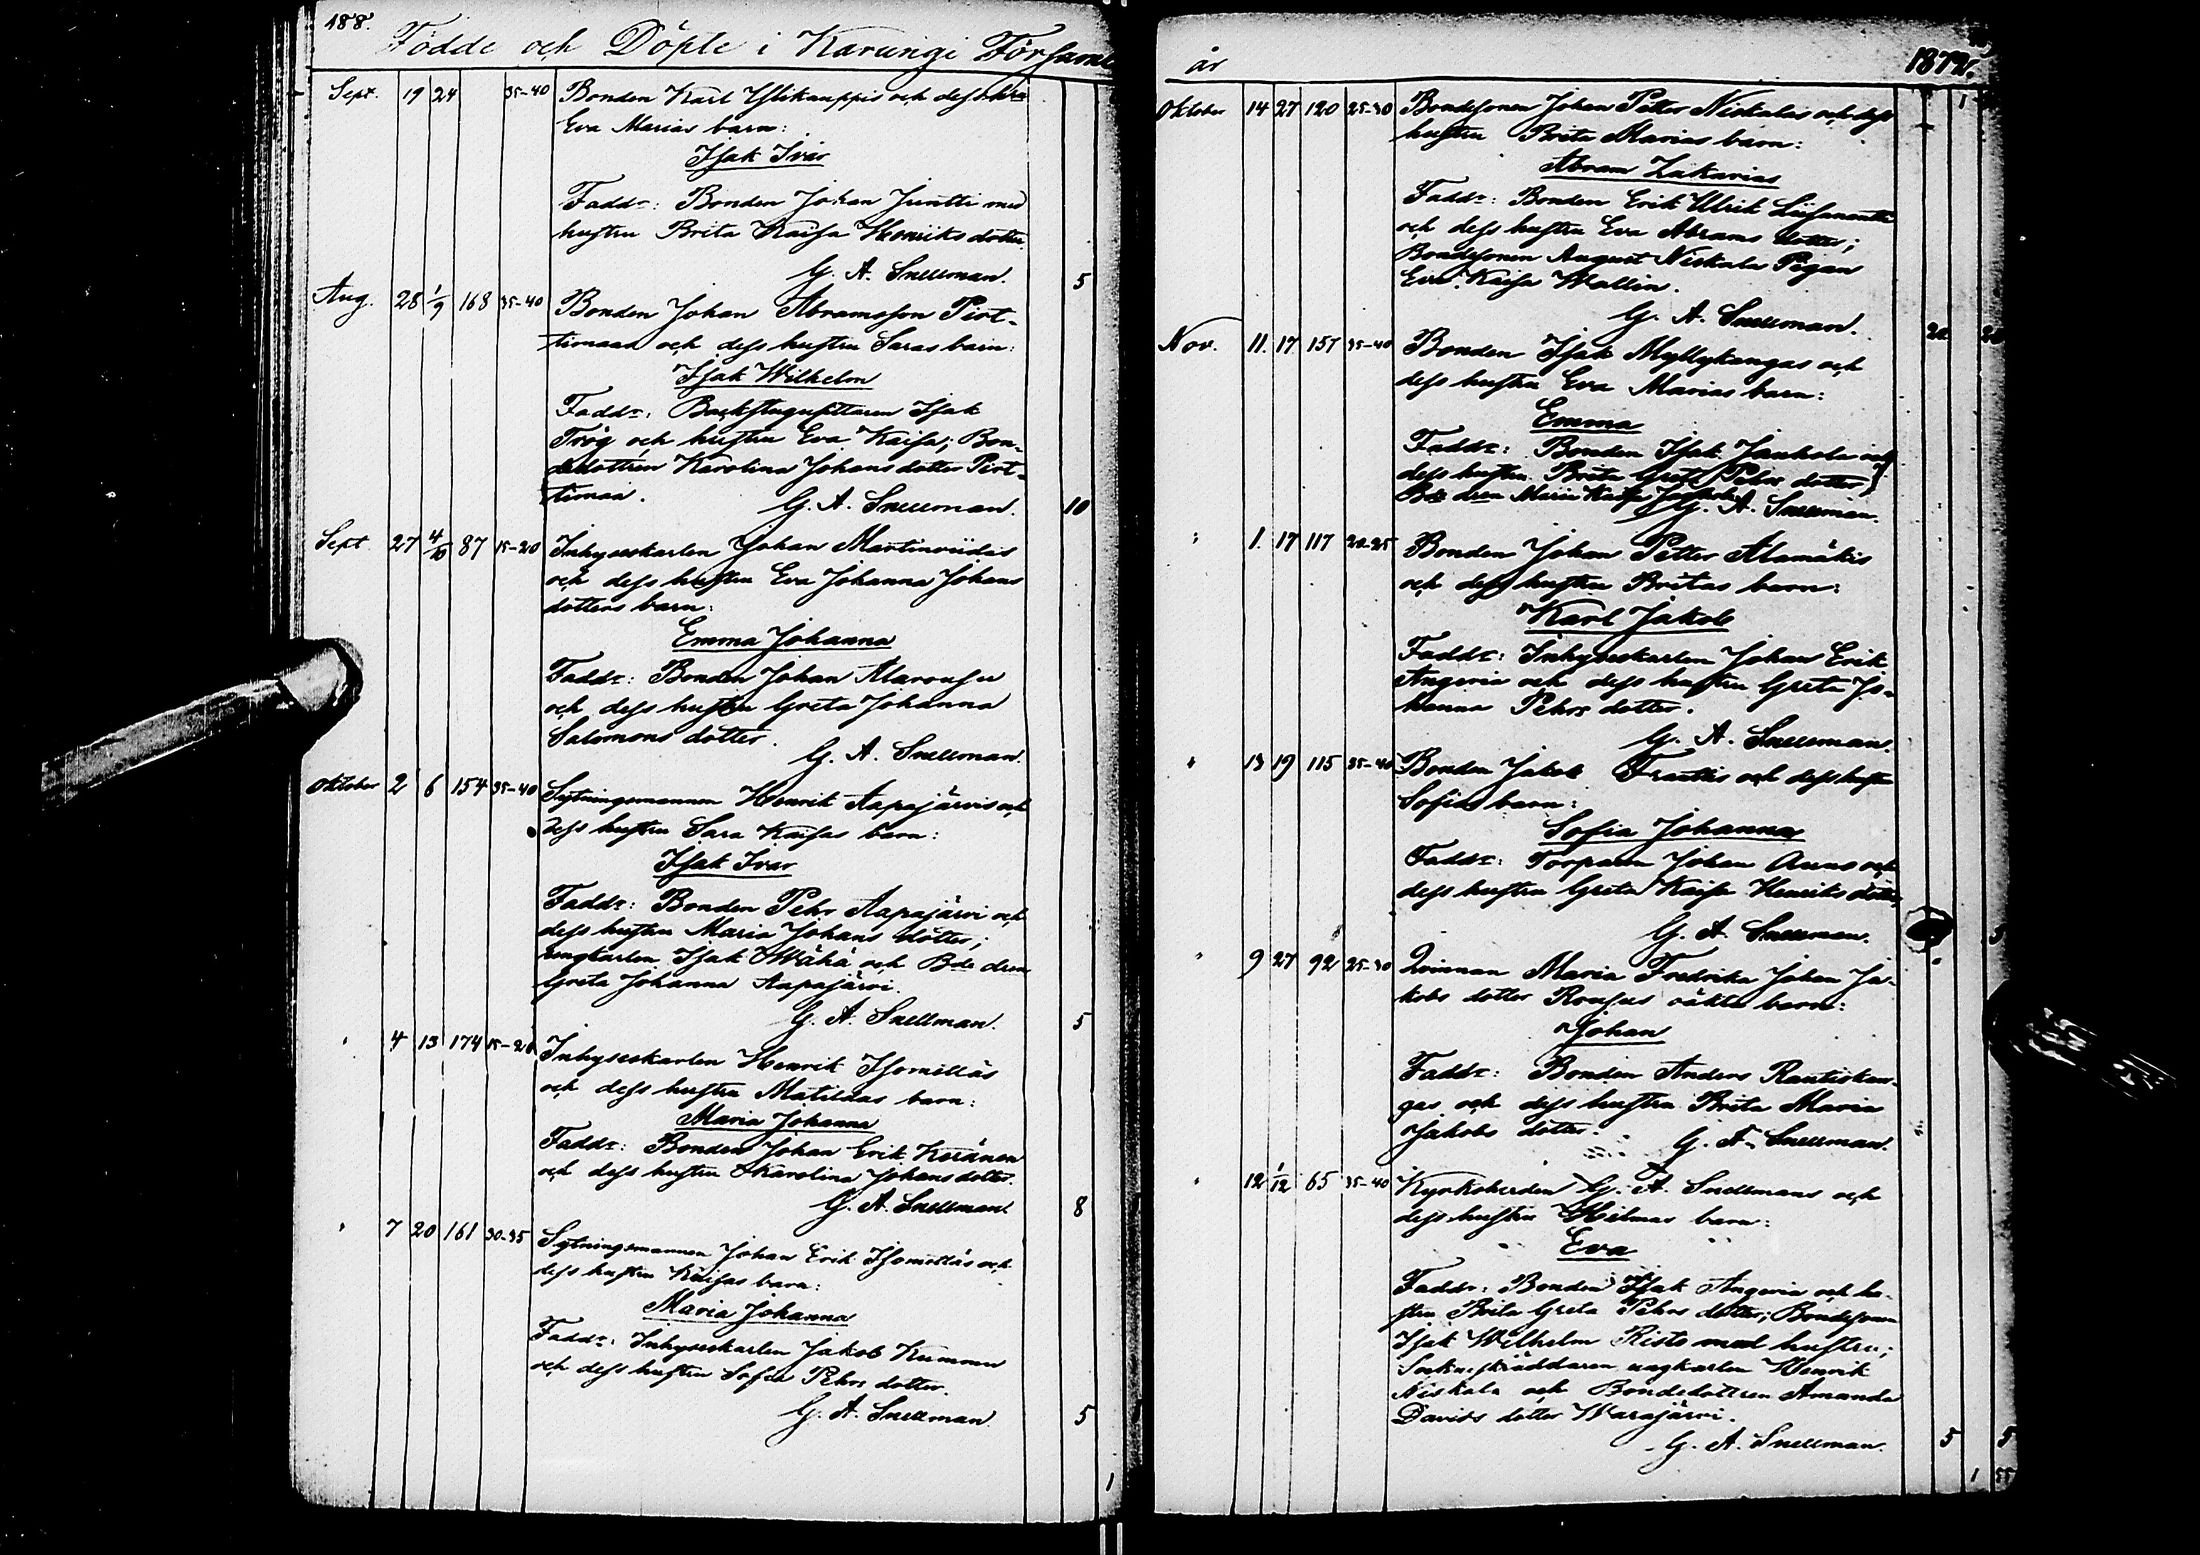 188.
Födde och Döpte i Karungi Församl
Sept. 19 24 35-40 Bonden Karl Ylikauppis och dess hra
Eva Marias barn:
Isak Ivar
Faddr: Bonden Johan Juntti med
hustru Brita Kaisa Henriks dotter
G. A. Snellman. 5
Aug. 28 1/9 168 35-40 Bonden Johan Abramsson Pirt-
timaas och dess hustru Saras barn:
Isak Wilhelm
Faddr: Backstugusittaren Isak
Trög och hustru Eva Kaisa; Bon-
dedottren Karolina Johans dotter Pirt-
timaa.
G. A. Snellman. 10
Sept. 27 4/10 87 15-20 Inhyseskarlen Johan Martinviidas
och dess hustru Eva Johanna Johans
dotters barn:
Emma Johanna
Faddr: Bonden Johan Alarousu
och dess hustru Greta Johanna
Salomons dotter.
G. A. Snellman.
Oktober 2 6 154 35-40 Sytningsmannen Henrik Aapajärvis och
dess hustru Sara Kaisas barn:
Isak Ivar
Faddr: Bonden Pehr Aapajärvi och
dess hustru Maria Johans dotter;
ungkarlen Isak Wähä och Bde dren
Greta Johanna Aapajärvi.
G. A. Snellman. 5
" 4 13 174 15-20 Inhyseskarlen Henrik Isomettäs
och dess hustru Matildas barn:
Maria Johanna
Faddr: Bonden Johan Erik Keränen
och dess hustru Karolina Johans dotter.
G. A. Snellman. 8
" 7 20 161 30-35 Sytningsmannen Johan Erik Isomettäs och
dess hustru Kaisas barn:
Maria Johanna
Faddr: Inhyseskarlen Jakob Kummu
och dess hustru Sofia Pehrs dotter.
G. A. Snellman. 5
1
år 1872.
Oktober 14 27 120 25-30 Bondesonen Johan Petter Niskalas och dess 1
hustru Brita Marias barn:
Abram Zakarias
Faddr: Bonden Erik Ulrik Liisanantti
och dess hustru Eva Abrams dotter;
Bondesonen August Niskala Pigan
Eva Kaisa Wallin.
G. A. Snellman. 20 20
Nov. 11. 17 157 35-40 Bonden Isak Myllykangas och
dess hustru Eva Marias barn:
Emma
Faddr: Bonden Isak Jauhola och
dess hustru Brita Greta Pehrs dotter;
Bde dren Maria Kaisa Jauhola
G. A. Snellman.
" 1. 17 117 20-25 Bonden Johan Petter Alamäkis
och dess hustru Britas barn:
Karl Jakob
Faddr: Inhyseskarlen Johan Erik
Angeria och dess hustru Greta Jo-
hanna Pehrs dotter.
G. A. Snellman.
" 13 19 115 35-40 Bonden Jakob Frantis och dess hustru
Sofias barn:
Sofia Johanna
Faddr: Torparen Johan Aunes och
dess hustru Greta Kaisa Henriks dotter.
G. A. Snellman. 5
" 9 27 92 25-30 Qvinnan Maria Fredrika Johan Ja-
kobs dotter Rousus oäkta barn:
Johan
Faddr: Bonden Anders Rautiskan-
gas och dess hustru Brita Maria
Jakobs dotter.
G. A. Snellman.
" 12 1/12 65 35-40 Kyrkoherden G. A. Snellmans och
dess hustru Hilmas barn:
Eva
Faddr: Bonden Isak Angeria och hu-
stru Brita Greta Pehrs dotter; Bondesonen
Isak Wilhelm Risto med hustru;
Sockneskräddaren ungkarlen Henrik
Niskala och Bondedottren Amanda
Davids dotter Warajärvi.
G. A. Snellman. 5 5
1 55